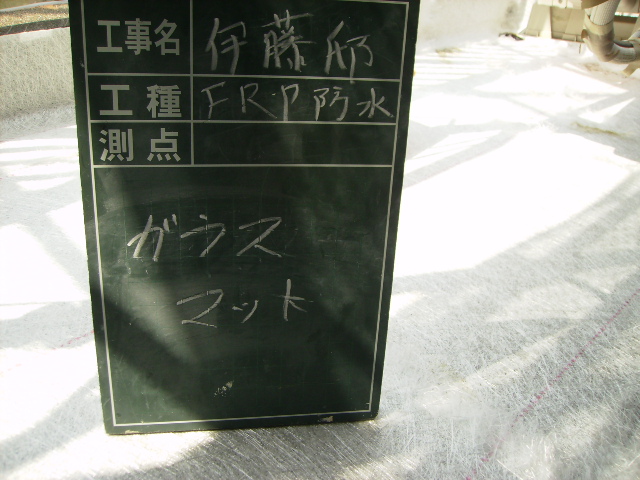 工事名 伊藤邸
工種 FRP防水
測点
ガラス
マット